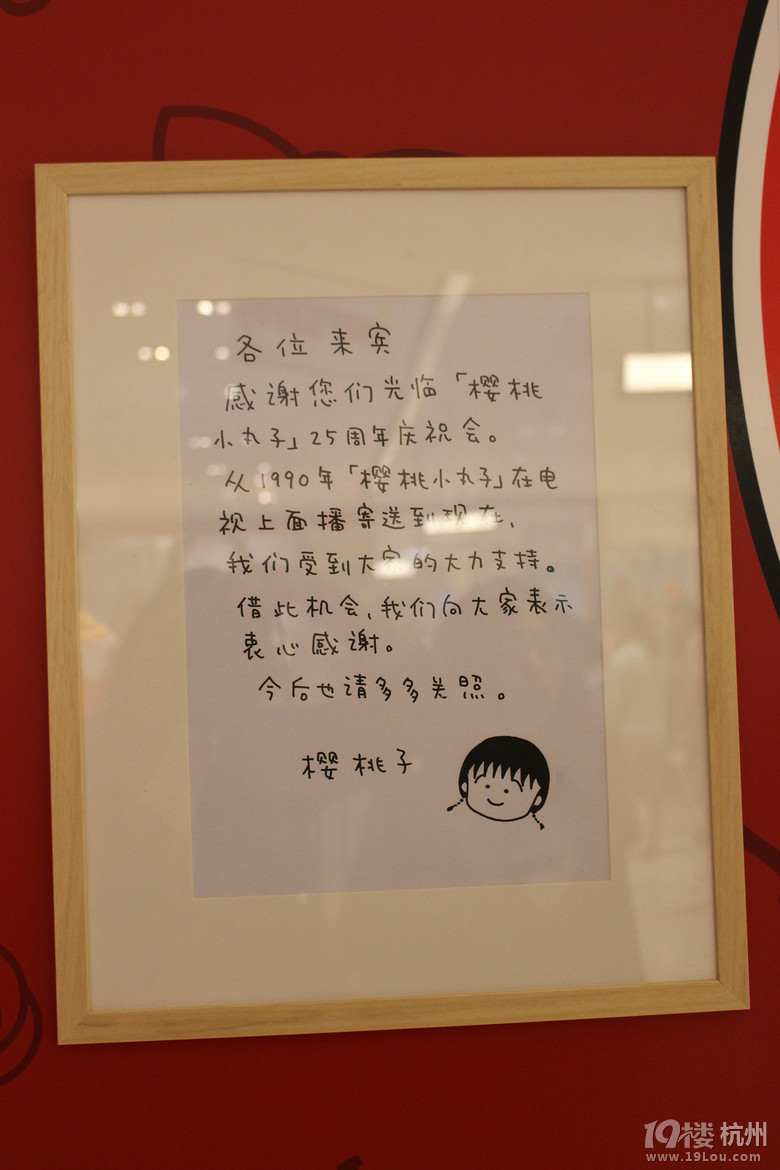 各位来宾
感谢您们光临「樱桃
小丸子」25周年庆祝会。
从1990年「樱桃小丸子」在电
视上面播寄送到现在,
我们受到大家的大力支持。
借此机会,我们向大家表示
衷心感谢。
今后也请多多关照。
樱桃子
19楼 杭州
www.19Lou.com